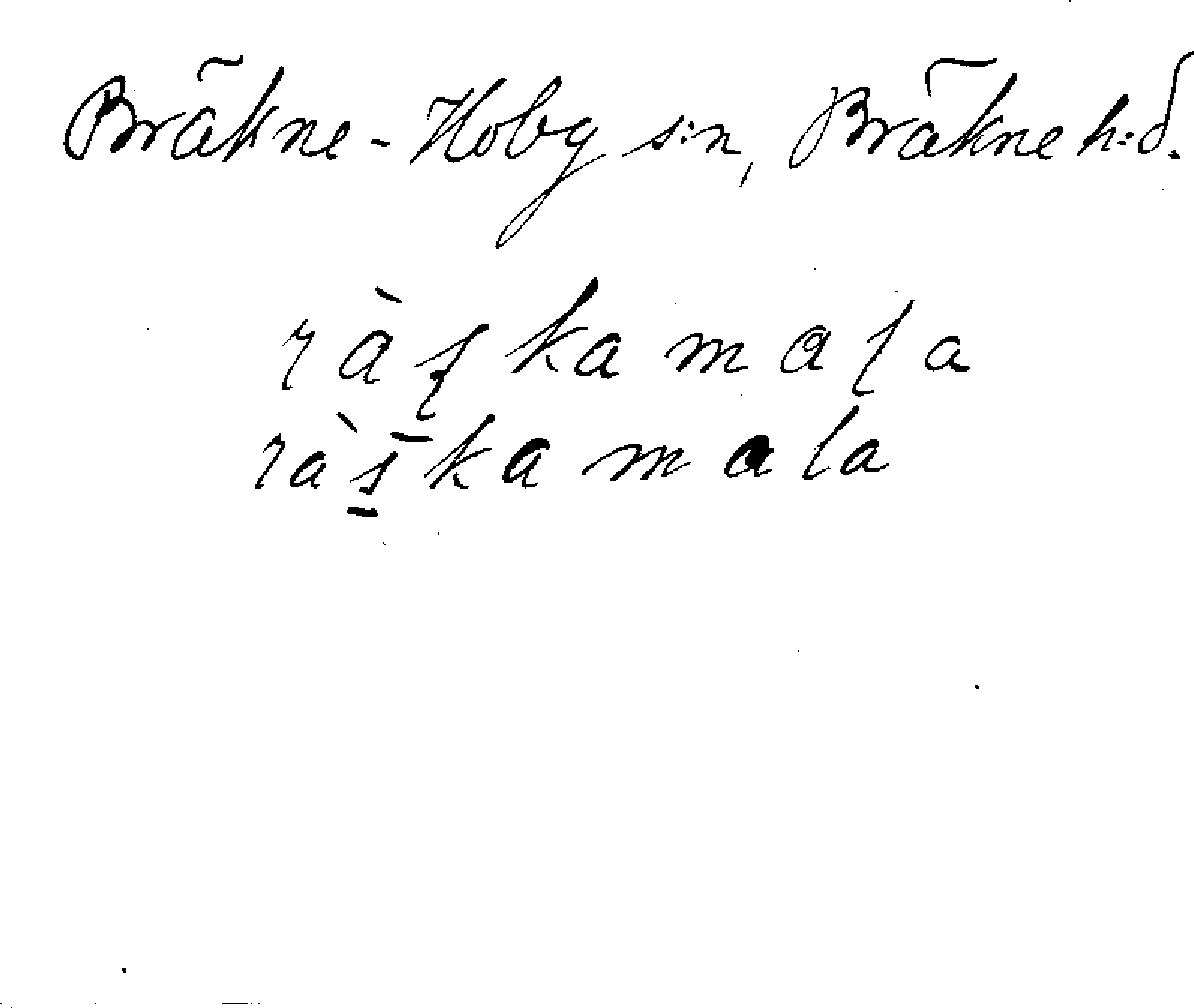 Bräkne-Hoby s:n, Bräkne h:d.
ràʂkamaɭa
ràs̲̄kamala